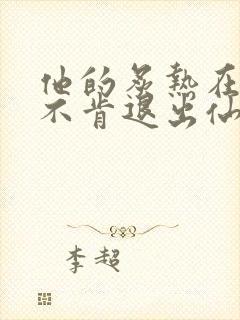 他的炙热在
不肯退出仙
李超